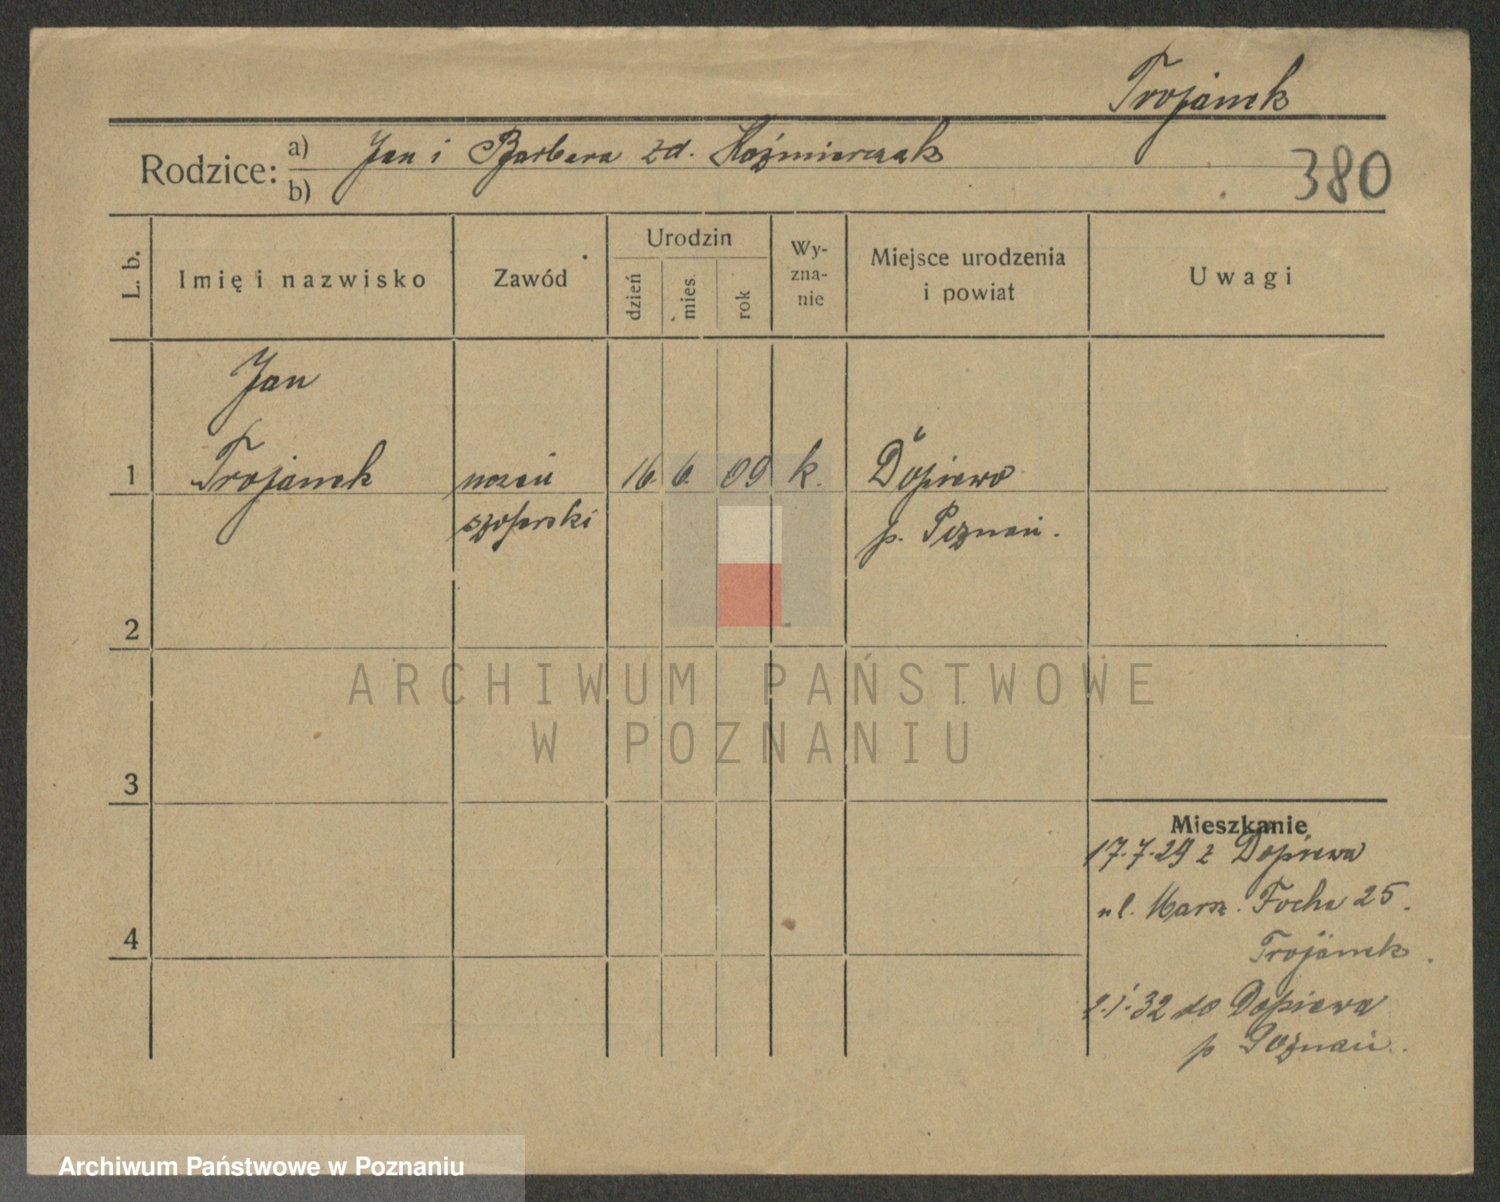 Trojanek
Rodzice: a) Jan i Barbara zd. Kaźmierczak
b)
380
L. b.
Imię i nazwisko
Zawód
Urodzin
dzień
mies.
rok
Wy-
zna-
nie
Miejsce urodzenia
i powiat
Uwagi
Jan
1 Trojanek uczeń 16 6. 09 k. Dopiewo
szoferski p. Poznań.
2
ARCHIWUM PAŃSTWOWE
W POZNANIU
3
Mieszkanie
17.7.29 z Dopiewa
ul. Marsz. Focha 25.
4
Trojanek.
2.1.32 do Dopiewa
p Poznań.
Archiwum Państwowe w Poznaniu